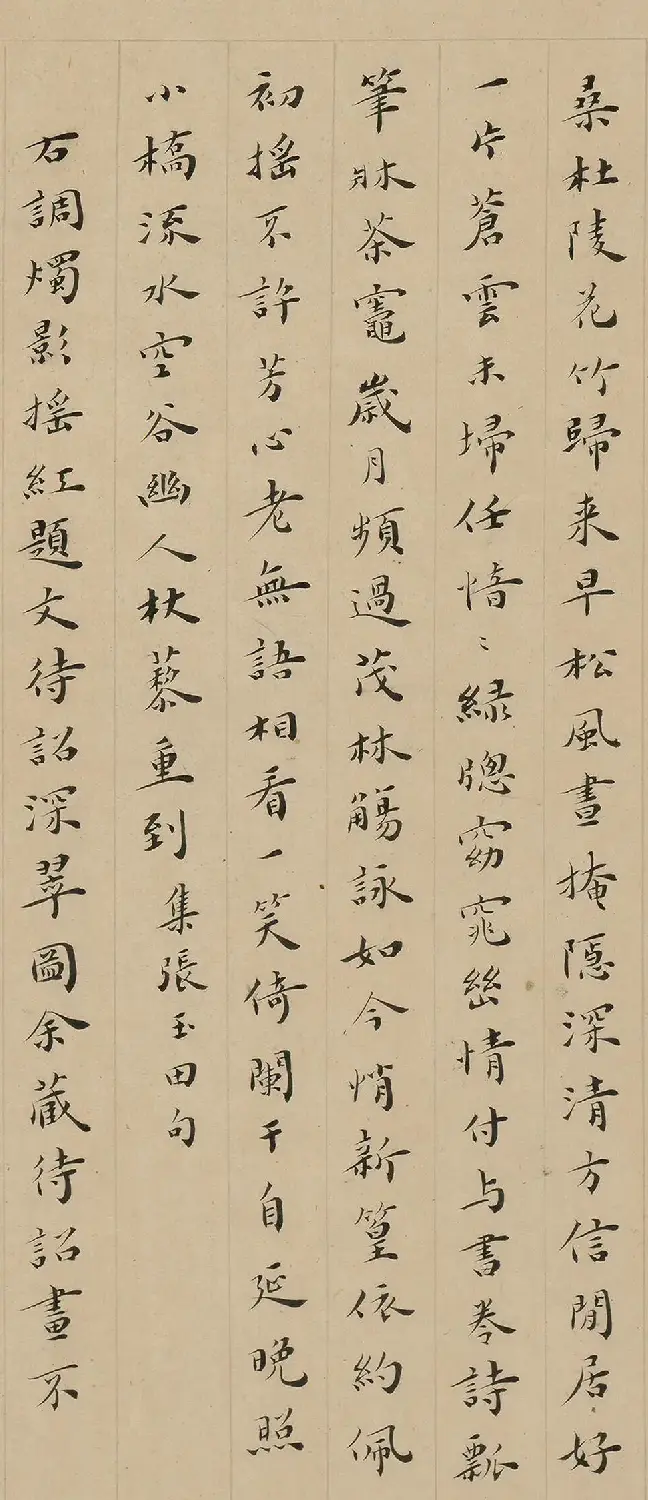 桑杜陵花竹歸来早松風晝掩隱深清方信閒居好
一片蒼雲未埽任愔〻緑牕窈窕幽情付与書卷詩瓢
筆牀茶竈歲月頻過茂林觴詠如今悄新篁依約佩
初搖不許芳心老無語相看一笑倚闌干自延晚照
小橋流水空谷幽人杖藜重到集張玉田句
右調燭影搖紅題文待詔深翠圖余藏待詔畫不